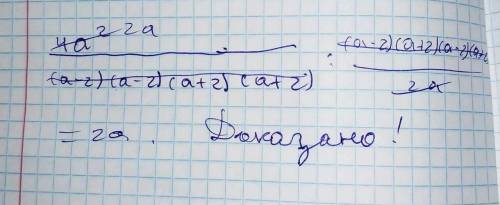 4a² 2a
(a-2)(a-2)(a+2)(a+2) : (a-2)(a+2)(a-2)(a+2
2a
= 2a. Доказано!